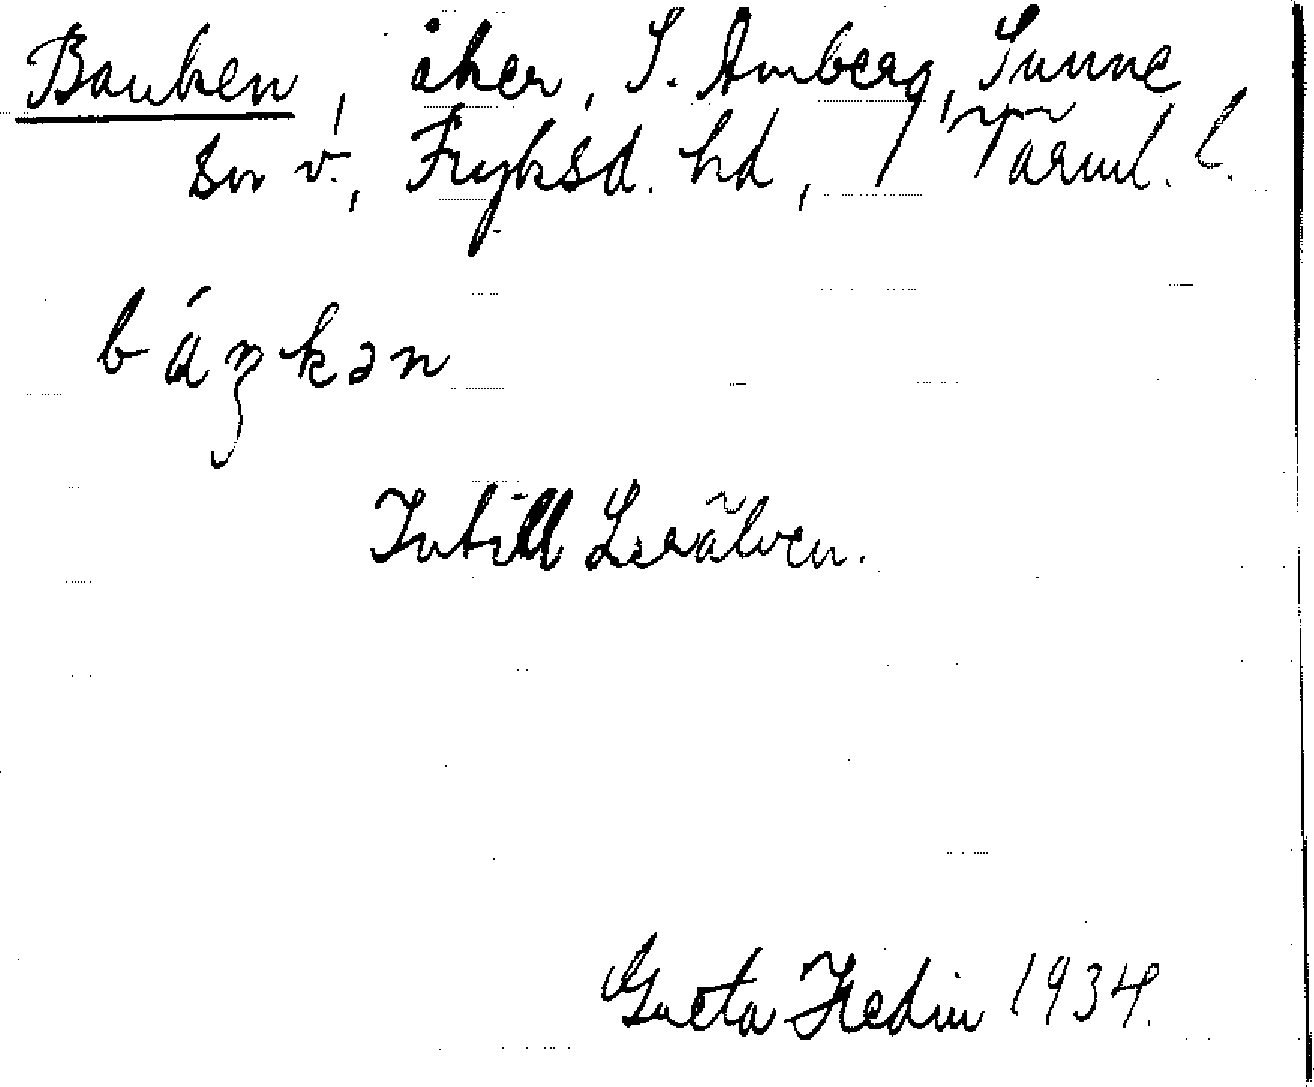 Banken, åker, S. Amberg, Sunne
sn v., Fryksd. hd, Värml. l.
báŋkən
Intill Lerälven.
Greta Hedin 1934.